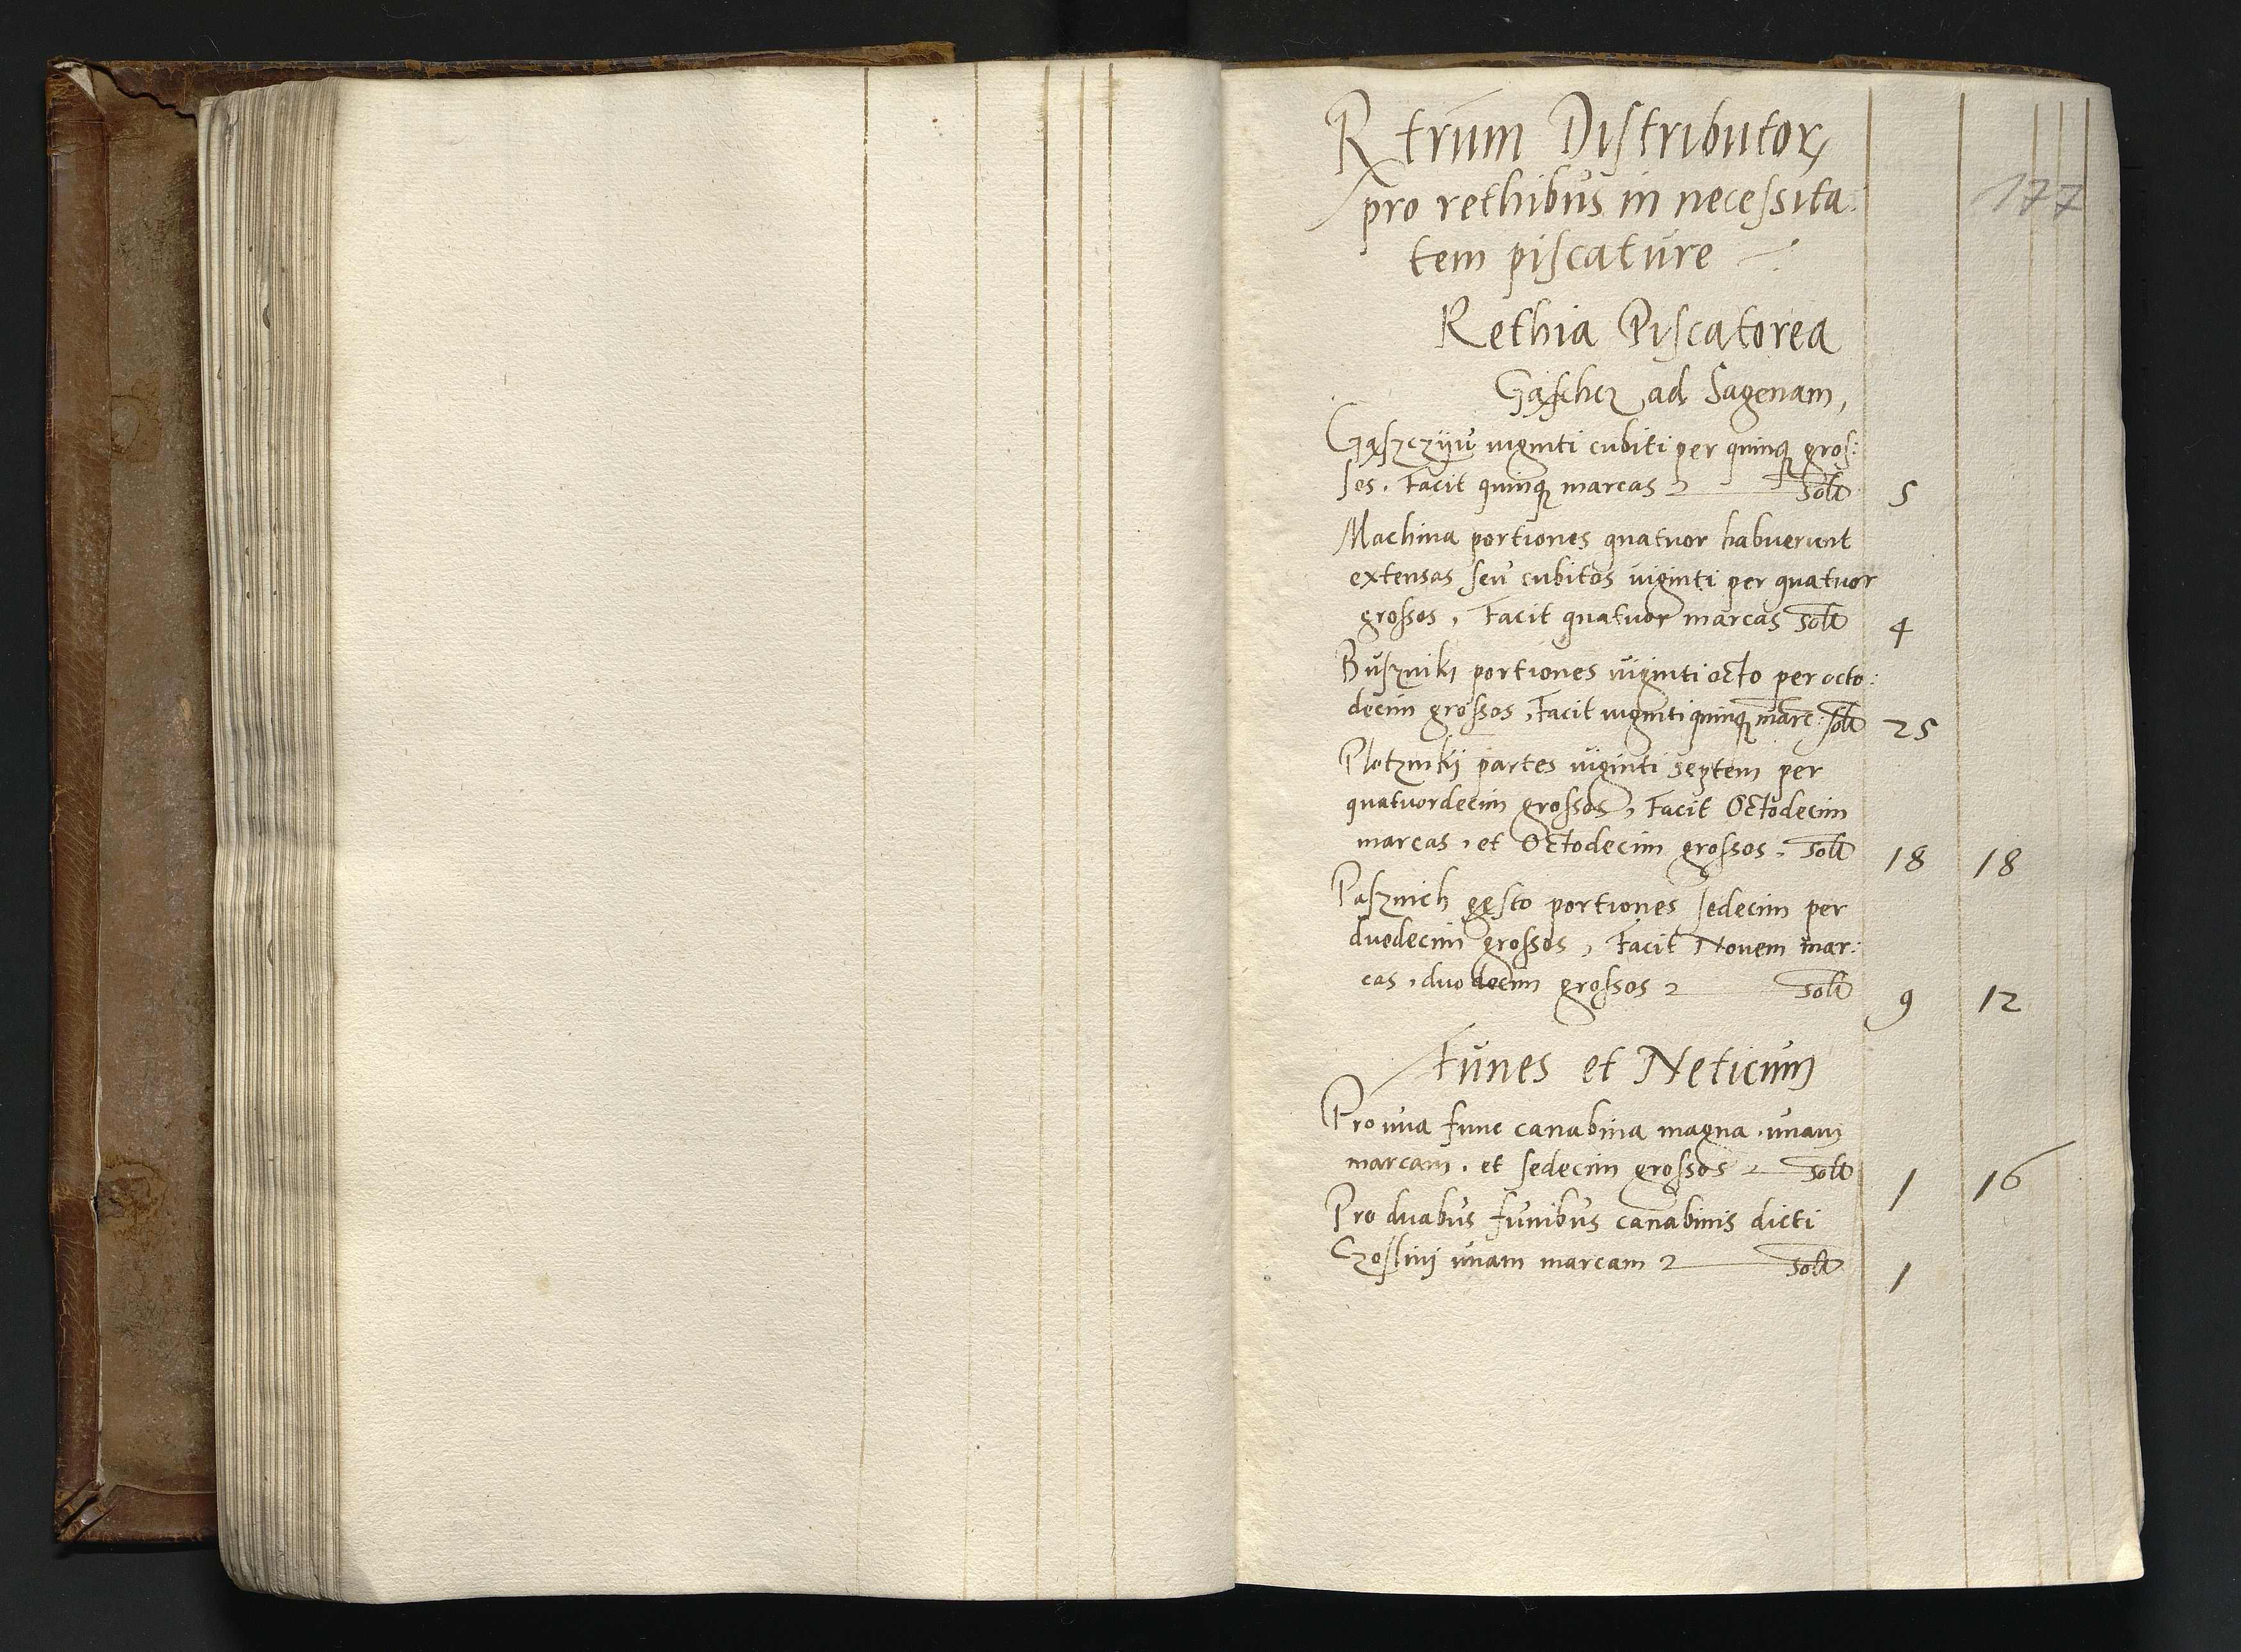 Rtrum Distributor
pro rethibus in necessita:
tem piscature
177
Rethia Piscatorea
ad Sagenam,
viginti cubiti per quinq gros:
ses. Facit quinq marcas solt 5
Machina portiones quatuor habuerunt
extensas seu cubitos viginti per quatuor
grossos, Facit quatuor marcas solt 4
Buszniki portiones viginti octo per octo:
decim grossos, Facit viginti quinq marc: solt 25
Plotznikij partes viginti septem per
quatuordecim grossos, Facit Octodecim
marcas, et Octodecim grossos. solt 18 18
Pasznich gęsto portiones sedecim per
duodecim grossos, Facit Novem mar:
cas, duodecim grossos solt 9 12
Funes et Neticum
Pro una fune canabina magna unam
marcam. et sedecim grossos solt 1 16
Pro duabus funibus canabinis dicti
unam marcam solt 1